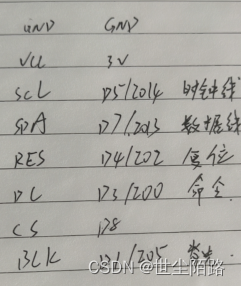 GND GND
VCC 3V
SCL D5/2014 时钟线
SDA D7/2013 数据线
RES D4/202 复位
DC D3/200 命令
CS D8
BLK D1/205 背光.
CSDN @世尘陌路